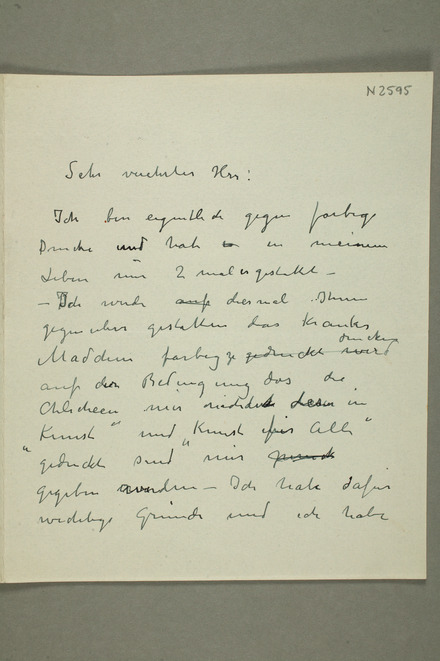 N2595
Sehr verehrter Herr!
Ich bin eigentlich gegen farbige
Drucke und hab in meinem
Leben nur 2 mal es gestattet –
– Ich würde diesmal Ihnen
gegenüber gestatten das Kranke
Mädchen farbig zu drucken
auf den Bedingung das die
Chlicheen mir in
Kunst" und "Kunst für Alle"
"gedruckt sind mir
gegeben werden – Ich habe dafür
wichtige Gründe und ich habe